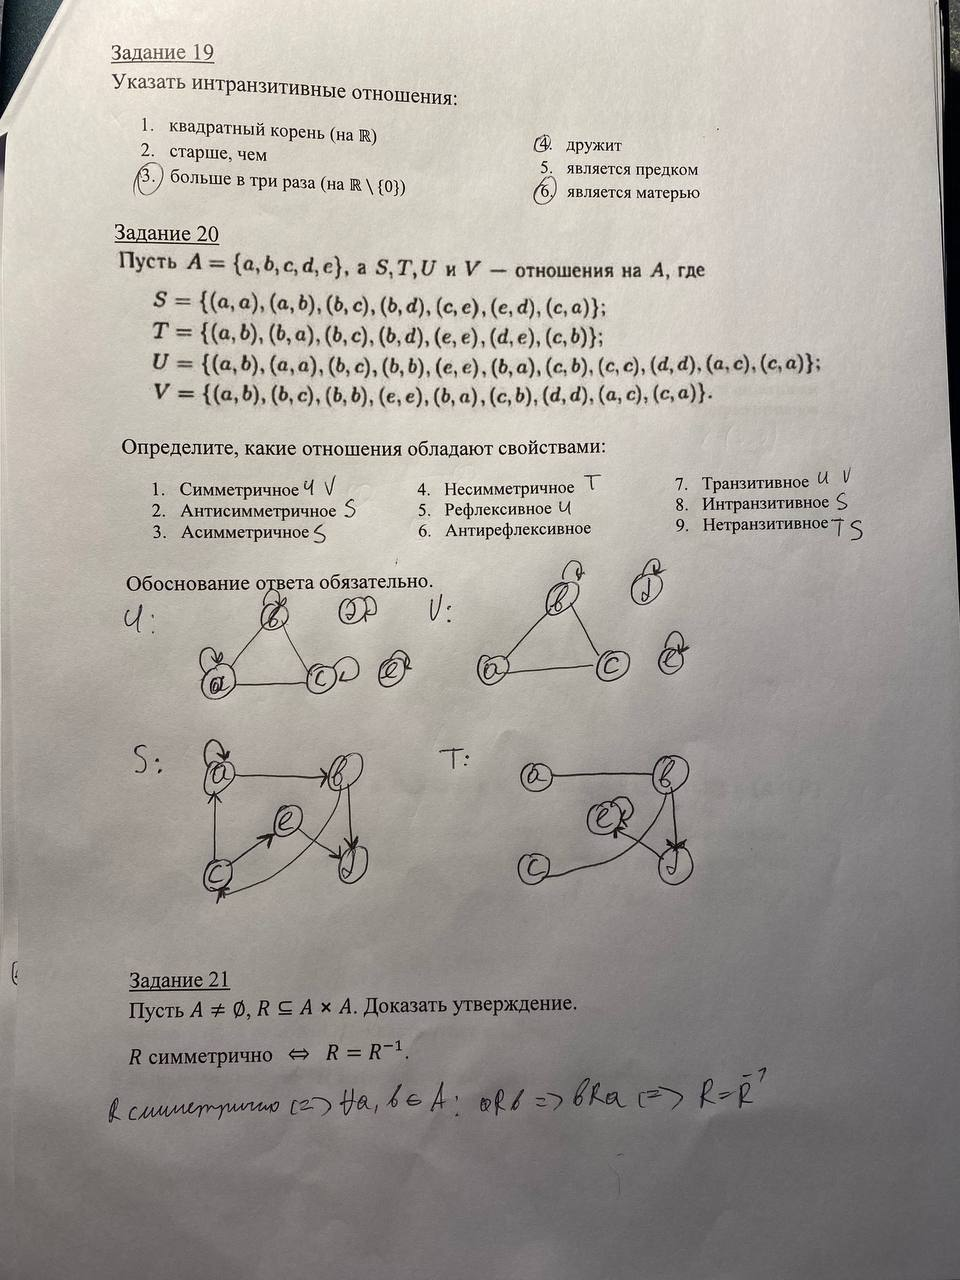 Задание 19
Указать интранзитивные отношения:
1. квадратный корень (на ℝ)
2. старше, чем
3. больше в три раза (на ℝ \ {0})
4. дружит
5. является предком
6. является матерью
Задание 20
Пусть A = {a, b, c, d, e}, а S, T, U и V — отношения на A, где
S = {(a, a), (a, b), (b, c), (b, d), (c, e), (e, d), (c, a)};
T = {(a, b), (b, a), (b, c), (b, d), (e, e), (d, e), (c, b)};
U = {(a, b), (a, a), (b, c), (b, b), (e, e), (b, a), (c, b), (c, c), (d, d), (a, c), (c, a)};
V = {(a, b), (b, c), (b, b), (e, e), (b, a), (c, b), (d, d), (a, c), (c, a)}.
Определите, какие отношения обладают свойствами:
1. Симметричное U V
2. Антисимметричное S
3. Асимметричное S
4. Несимметричное T
5. Рефлексивное U
6. Антирефлексивное
7. Транзитивное U V
8. Интранзитивное S
9. Нетранзитивное T S
Обоснование ответа обязательно.
U:
b d
a c e
V:
b d
a c e
S:
a b
e
c d
T:
a b
e
c d
Задание 21
Пусть A ≠ ∅, R ⊆ A × A. Доказать утверждение.
R симметрично ⇔ R = R⁻¹.
R симметрично <=> ∀a, b ∈ A: aRb => bRa <=> R = R⁻¹